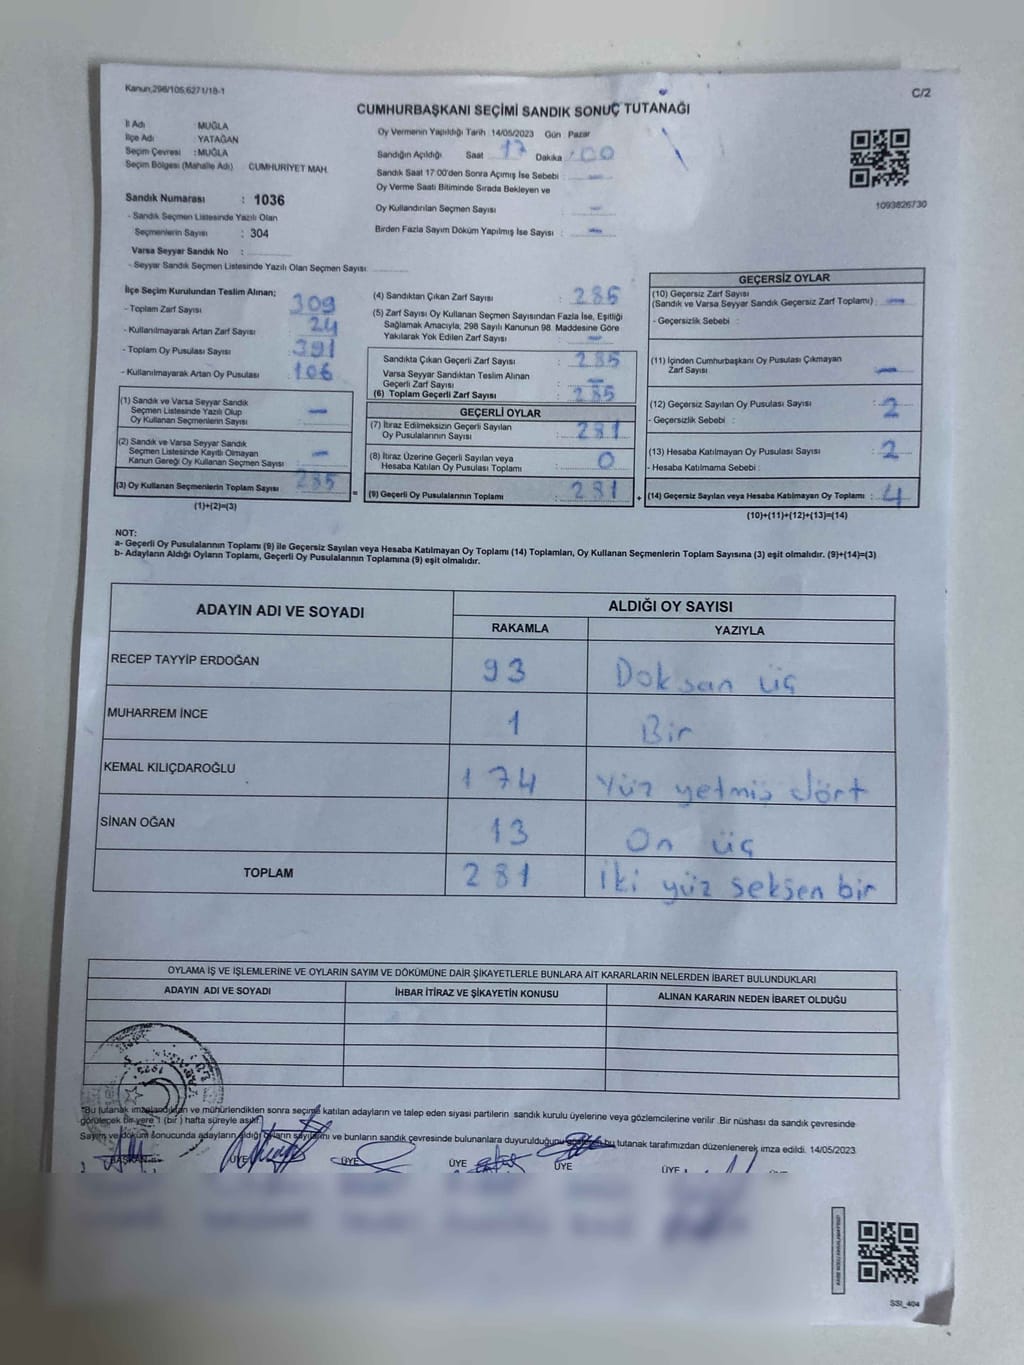 Kanun;298/105;6271/18-1
C/2
CUMHURBAŞKANI SEÇİMİ SANDIK SONUÇ TUTANAĞI
İl Adı : MUĞLA
İlçe Adı : YATAĞAN
Seçim Çevresi : MUĞLA
Seçim Bölgesi (Mahalle Adı) CUMHURİYET MAH.
Oy Vermenin Yapıldığı Tarih :14/05/2023 Gün Pazar
Sandığın Açıldığı Saat 17 Dakika :00
Sandık Saat 17:00'den Sonra Açımış İse Sebebi : —
Oy Verme Saati Bitiminde Sırada Bekleyen ve
Oy Kullandırılan Seçmen Sayısı : —
Birden Fazla Sayım Döküm Yapılmış İse Sayısı : —
1093826730
Sandık Numarası : 1036
- Sandık Seçmen Listesinde Yazılı Olan
Seçmenlerin Sayısı : 304
Varsa Seyyar Sandık No :
- Seyyar Sandık Seçmen Listesinde Yazılı Olan Seçmen Sayısı:
İlçe Seçim Kurulundan Teslim Alınan;
- Toplam Zarf Sayısı : 309
- Kullanılmayarak Artan Zarf Sayısı : 24
- Toplam Oy Pusulası Sayısı : 391
- Kullanılmayarak Artan Oy Pusulası : 106
(1) Sandık ve Varsa Seyyar Sandık
Seçmen Listesinde Yazılı Olup
Oy Kullanan Seçmenlerin Sayısı : —
(2) Sandık ve Varsa Seyyar Sandık
Seçmen Listesinde Kayıtlı Olmayan
Kanun Gereği Oy Kullanan Seçmen Sayısı : —
(3) Oy Kullanan Seçmenlerin Toplam Sayısı : 285
(1)+(2)=(3)
(4) Sandıktan Çıkan Zarf Sayısı : 285
(5) Zarf Sayısı Oy Kullanan Seçmen Sayısından Fazla İse, Eşitliği
Sağlamak Amacıyla; 298 Sayılı Kanunun 98. Maddesine Göre
Yakılarak Yok Edilen Zarf Sayısı : —
Sandıkta Çıkan Geçerli Zarf Sayısı : 285
Varsa Seyyar Sandıktan Teslim Alınan
Geçerli Zarf Sayısı : —
(6) Toplam Geçerli Zarf Sayısı : 285
GEÇERLİ OYLAR
(7) İtiraz Edilmeksizin Geçerli Sayılan
Oy Pusulalarının Sayısı : 281
(8) İtiraz Üzerine Geçerli Sayılan veya
Hesaba Katılan Oy Pusulası Toplamı : 0
= (9) Geçerli Oy Pusulalarının Toplamı : 281 +
GEÇERSİZ OYLAR
(10) Geçersiz Zarf Sayısı
(Sandık ve Varsa Seyyar Sandık Geçersiz Zarf Toplamı) : —
- Geçersizlik Sebebi :
(11) İçinden Cumhurbaşkanı Oy Pusulası Çıkmayan
Zarf Sayısı : —
(12) Geçersiz Sayılan Oy Pusulası Sayısı : 2
- Geçersizlik Sebebi :
(13) Hesaba Katılmayan Oy Pusulası Sayısı : 2
- Hesaba Katılmama Sebebi :
(14) Geçersiz Sayılan veya Hesaba Katılmayan Oy Toplamı : 4
(10)+(11)+(12)+(13)=(14)
NOT:
a- Geçerli Oy Pusulalarının Toplamı (9) ile Geçersiz Sayılan veya Hesaba Katılmayan Oy Toplamı (14) Toplamları, Oy Kullanan Seçmenlerin Toplam Sayısına (3) eşit olmalıdır. (9)+(14)=(3)
b- Adayların Aldığı Oyların Toplamı, Geçerli Oy Pusulalarının Toplamına (9) eşit olmalıdır.
ADAYIN ADI VE SOYADI ALDIĞI OY SAYISI
RAKAMLA YAZIYLA
RECEP TAYYİP ERDOĞAN 93 Doksan üç
MUHARREM İNCE 1 Bir
KEMAL KILIÇDAROĞLU 174 Yüz yetmiş dört
SİNAN OĞAN 13 On üç
TOPLAM 281 İki yüz seksen bir
OYLAMA İŞ VE İŞLEMLERİNE VE OYLARIN SAYIM VE DÖKÜMÜNE DAİR ŞİKAYETLERLE BUNLARA AİT KARARLARIN NELERDEN İBARET BULUNDUKLARI
ADAYIN ADI VE SOYADI İHBAR İTİRAZ VE ŞİKAYETİN KONUSU ALINAN KARARIN NEDEN İBARET OLDUĞU
*Bu tutanak imzalandıktan ve mühürlendikten sonra seçime katılan adayların ve talep eden siyasi partilerin sandık kurulu üyelerine veya gözlemcilerine verilir .Bir nüshası da sandık çevresinde
görülecek bir yere 1 (bir) hafta süreyle asılır.
Sayım ve döküm sonucunda adayların aldığı oyların sayılarını ve bunların sandık çevresinde bulunanlara duyurulduğunu bu tutanak tarafımızdan düzenlenerek imza edildi. 14/05/2023
BAŞKAN ÜYE ÜYE ÜYE ÜYE ÜYE
SSI_404